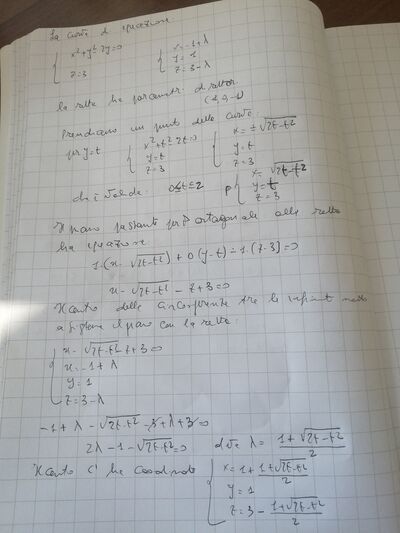 La curva di equazione
{ x²+y²-2y=0
z=3
{ x=-1+λ
y=1
z=3-λ
la retta ha parametri direttori
(1,0,-1)
Prendiamo un punto della curva:
per y=t { x²+t²-2t=0
y=t
z=3
{ x=±√2t-t²
y=t
z=3
che è valida: 0≤t≤2 P { x=√2t-t²
y=t
z=3
Il piano passante per P ortogonale alla retta
ha equazione
1·(x-√2t-t²)+0(y-t)-1·(z-3)=0
x-√2t-t²-z+3=0
Il centro della circonferenza
il piano con la retta:
{ x-√2t-t²-z+3=0
x=-1+λ
y=1
z=3-λ
-1+λ-√2t-t²-3+λ+3=0
2λ-1-√2t-t²=0 λ= 1+√2t-t² / 2
Il centro C ha coordinate { x=1+ 1+√2t-t² / 2
y=1
z=3- 1+√2t-t² / 2